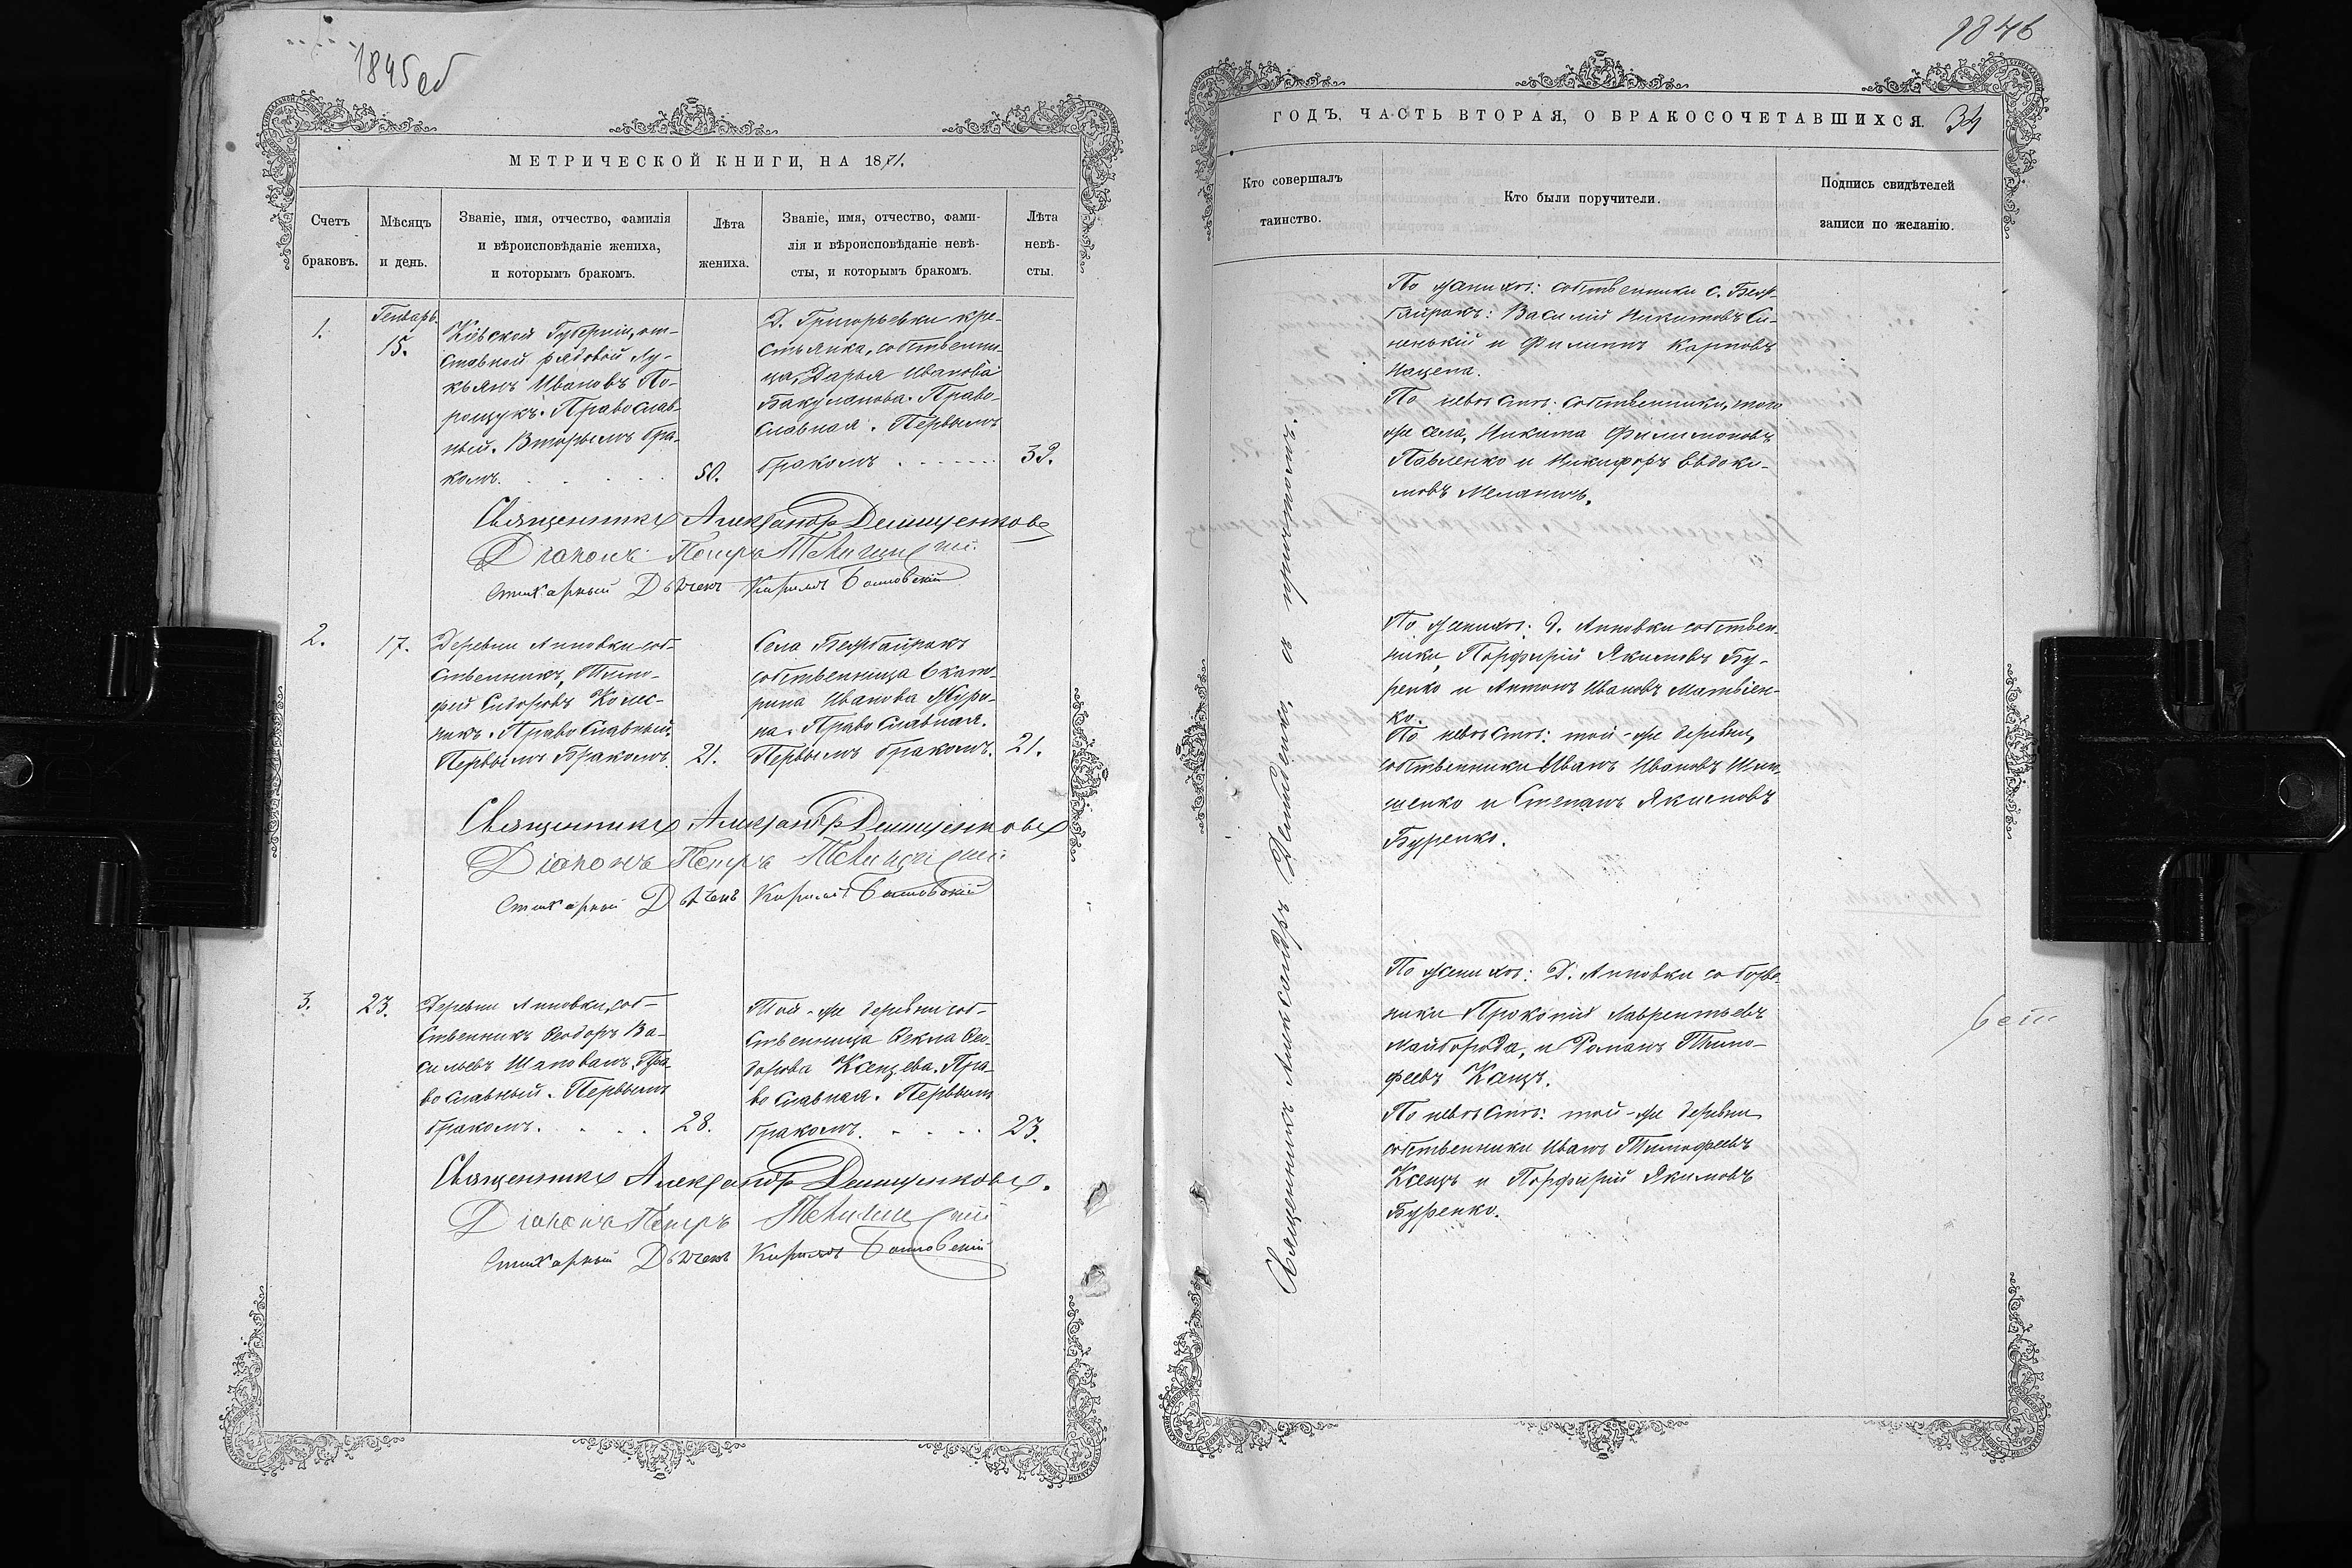 1845об
МЕТРИЧЕСКОЙ КНИГИ, НА 1871.
Счетъ браковъ.
Мѣсяцъ и день.
Званіе, имя, отчество, фамилія
и вѣроисповѣданіе жениха,
и которымъ бракомъ.
Лѣта жениха.
Званіе, имя, отчество, фами-
лія и вѣроисповѣданіе невѣ-
сты, и которымъ бракомъ.
Лѣта невѣ-
сты.
1.
Генварь
15.
Кіевской Губерніи, от-
ставной рядовой Лу-
кьянъ Ивановъ По-
рощукъ. Православ-
ный. Вторымъ бра-
комъ.
50.
Д. Григорьевки кре-
стьянка, собственни-
ца, Дарья Иванова
Бакуманова. Право-
славная. Первымъ
бракомъ
39.
Священникъ Александръ Демиденковъ
Діаконъ Петръ
Стихарный Дьячекъ Кириллъ
2.
17.
Деревни Анновки соб-
ственникъ, Тимо-
фей Сидоровъ Колес-
никъ. Православный.
Первымъ Бракомъ.
21.
Села Безбайракъ
собственница Екате-
рина Иванова Журо-
ва. Православная.
Первымъ бракомъ.
21.
Священникъ Александръ Демиденковъ
Діаконъ Петръ
Стихарный Дьячекъ Кириллъ
3.
23.
Деревни Анновки, соб-
ственникъ Ѳеодоръ Ва-
сильевъ Шаповалъ. Пра-
вославный. Первымъ
бракомъ.
28.
Той-же деревни соб-
ственница Ѳекла Ѳео-
дорова Канцева. Пра-
вославная. Первымъ
бракомъ.
23.
Священникъ Александръ Демиденковъ.
Діаконъ Петръ
Стихарный Дьячекъ Кириллъ
1846
ГОДЪ, ЧАСТЬ ВТОРАЯ, О БРАКОСОЧЕТАВШИХСЯ. 34
Кто совершалъ
таинство.
Кто были поручители.
Подпись свидѣтелей
записи по желанію.
Священникъ Александръ Демиденко, съ причтомъ.
По женихѣ: собственники с. Без-
байракъ: Василій Никитовъ Си-
ненькій и Филиппъ Карповъ
Нацепа.
По невѣстѣ: собственники, того
же села, Никита Филимоновъ
Павленко и Никифоръ Евдоки-
мовъ
По женихѣ: д. Анновки собствен-
ники, Порфирій Якимовъ Бу-
ренко и Антонъ Ивановъ Матвіен-
ко.
По невѣстѣ: той-же деревни,
собственники Иванъ Ивановъ
и Степанъ Якимовъ
Буренко.
По женихѣ: Д. Анновки
ники Прокопій Лаврентьевъ
Майборода, и Романъ Тимо-
феевъ Канцъ.
По невѣстѣ: той-же деревни
собственники Иванъ Тимофеевъ
Канцъ и Порфирій Якимовъ
Буренко.